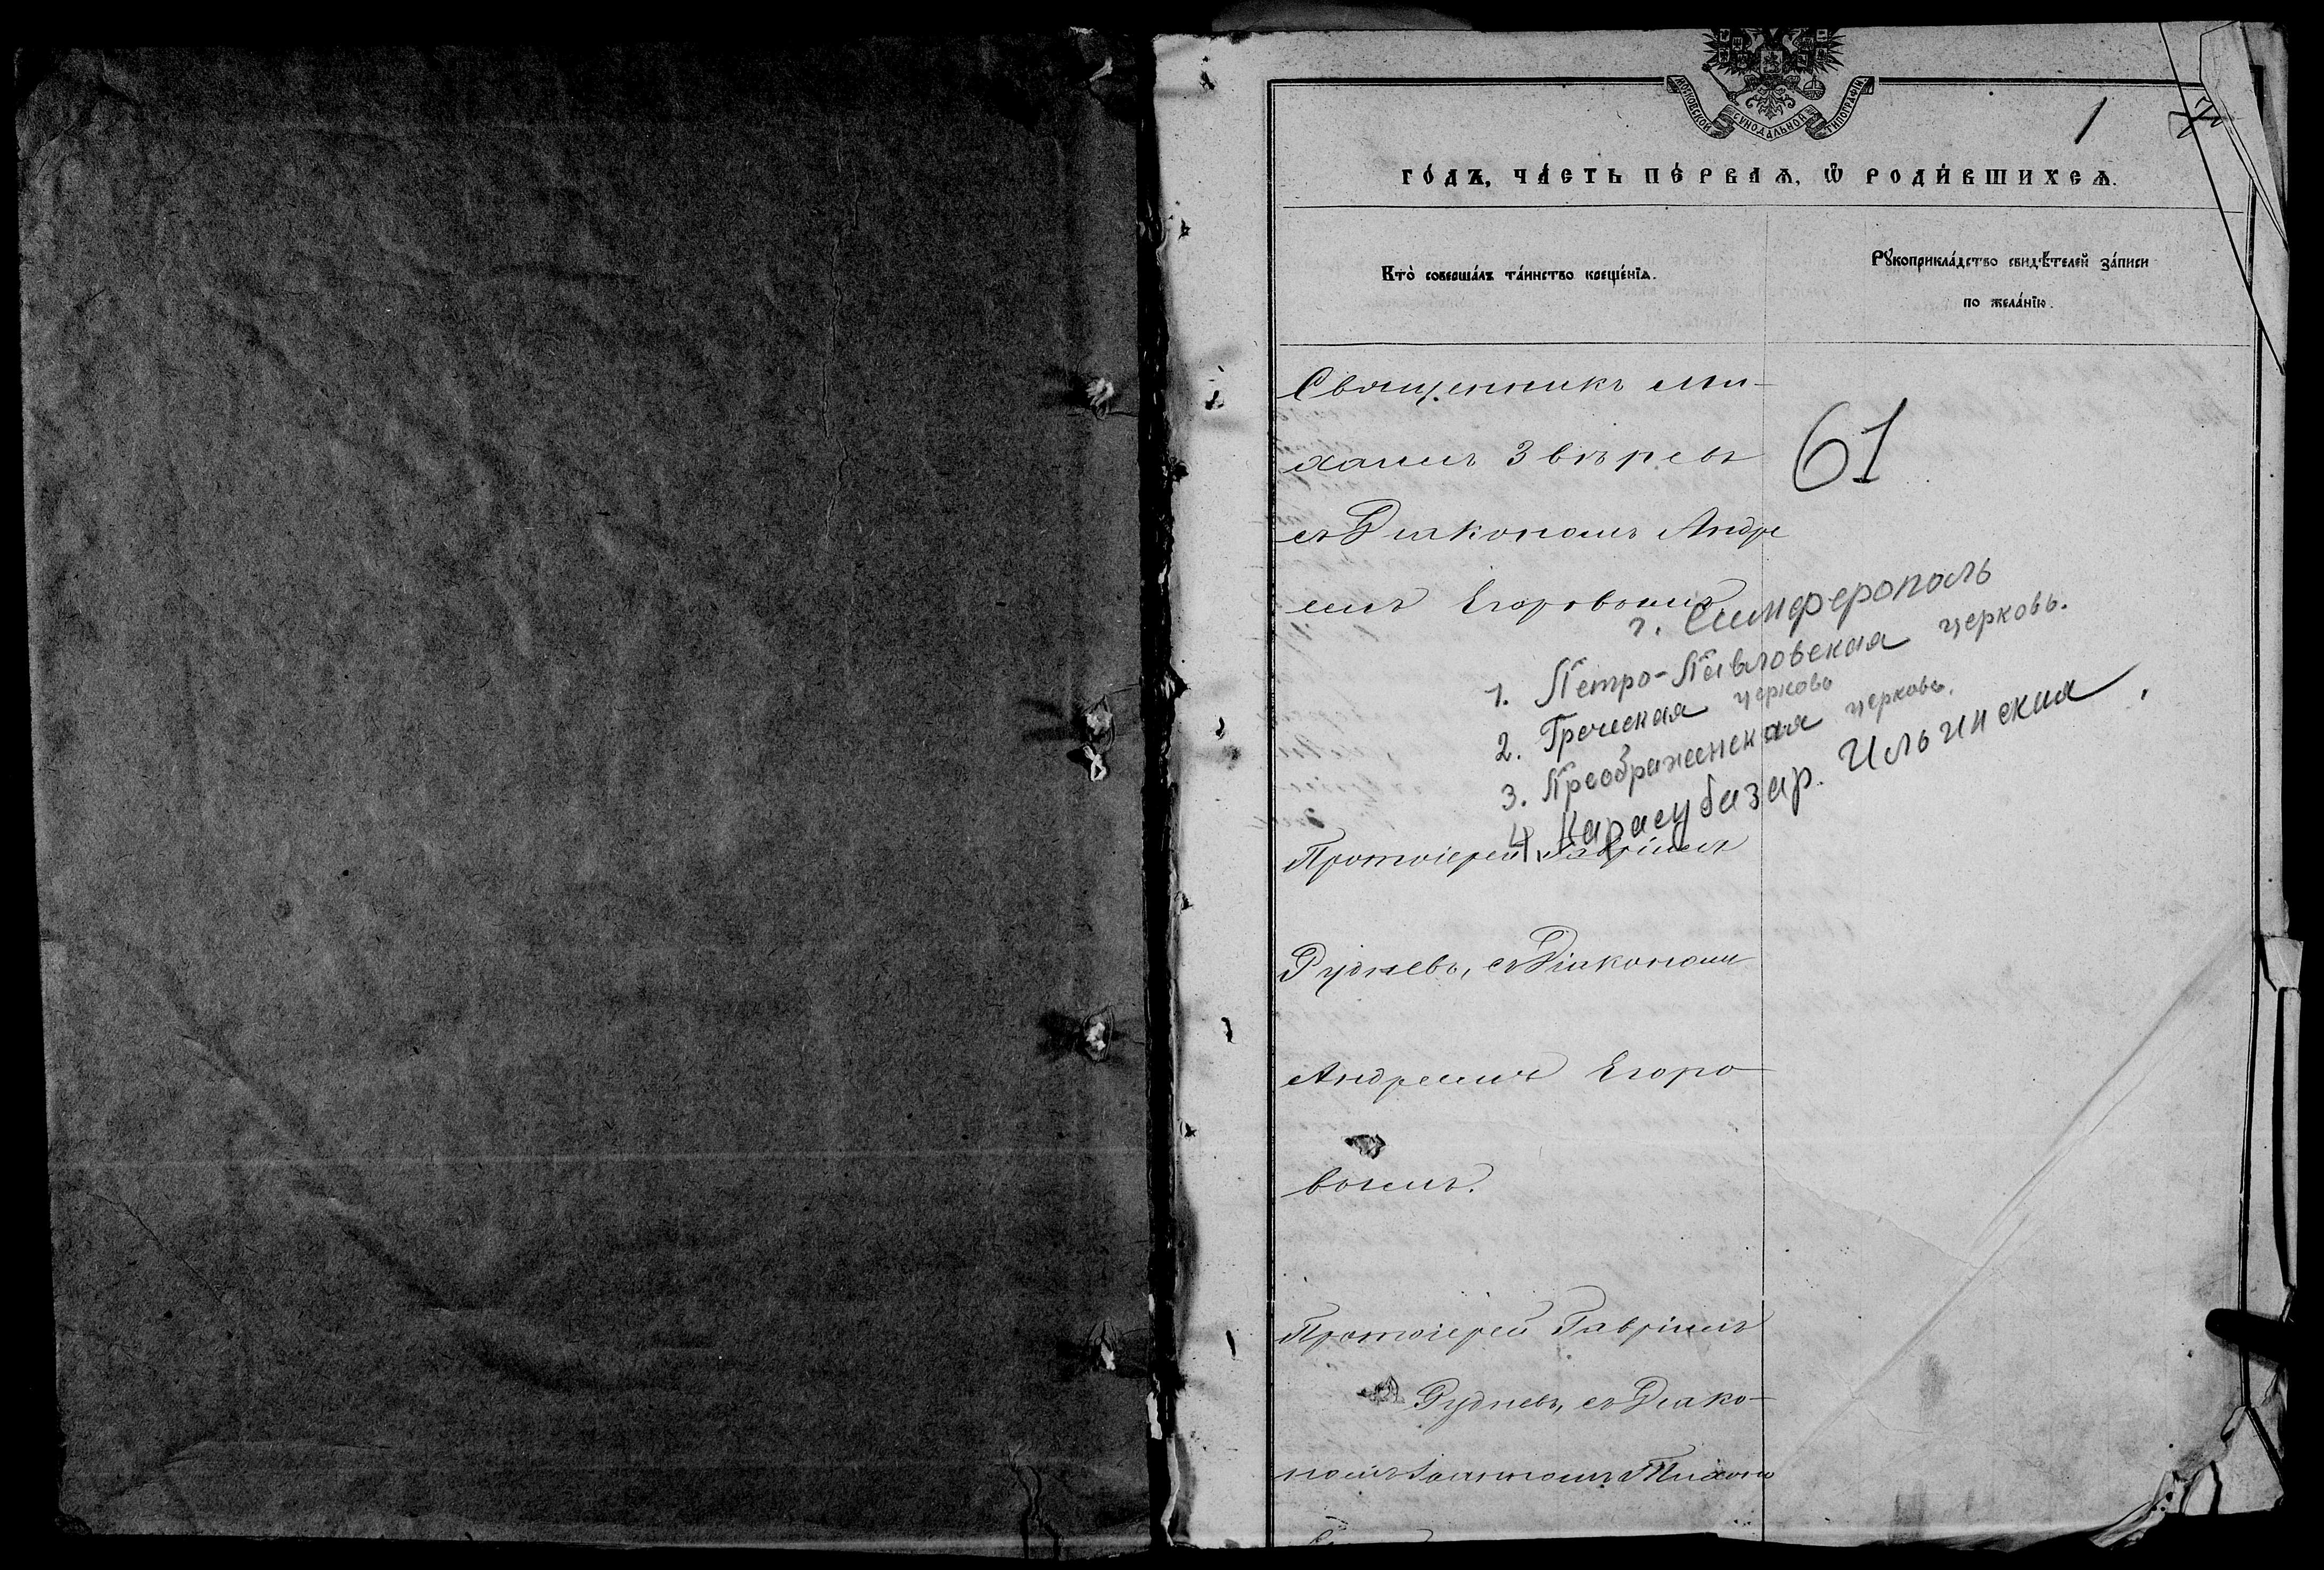 МОСКОВСКОЙ СѴНОДАЛЬНОЙ ТИПОГРАФІИ.
1
ГО́ДЪ, ЧА́СТЬ ПЕ́РВАѦ, Ѡ҆ РОДИ́ВШИХСѦ.
Кто̀ соверша́лъ та́инство креще́нїѧ.
Рꙋкоприкла́дство свидѣ́телей за́писи
по жела́нїю.
Священникъ Ми-
хаилъ Звѣревъ
61
съ Діакономъ Андре
емъ Егоровымъ
г. Симферополь
1. Петро-Павловская церковь.
2. Греческая церковь
3. Преображенская церковь.
4. Карасубазар. Ильинская.
Протоіерей Гавріилъ
Рудневъ, съ Діакономъ
Андреемъ Егоро-
вымъ.
Протоіерей Гавріилъ
Рудневъ, съ Діако-
номъ Іоанномъ Тихоно